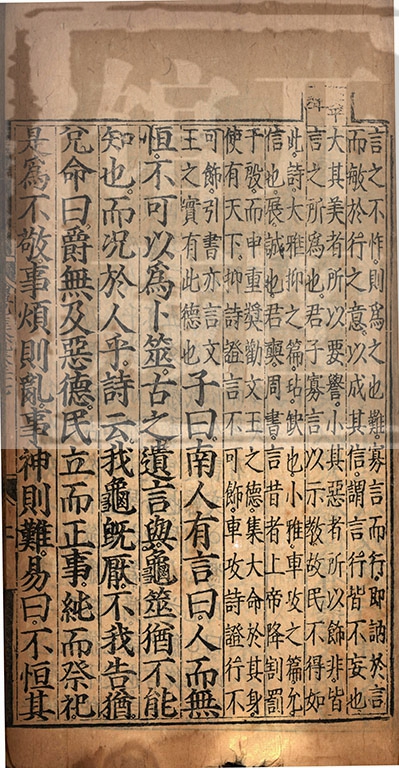 言之不怍則爲之也難寡言而行即訥於言
而敏於行之意以成其信謂言行皆不妄也
大其美者所以要譽小其惡者所以飾非皆
言之所爲也君子寡言以示敎故民不得如
此詩大雅抑之篇玷缺也小雅車攻之篇允
信也展誠也君奭周書言昔者上帝降割罰
于殷而申重奬勸文王之德集大命於其身
使有天下抑詩證言不可飾車攻詩證行不
可飾引書亦言文
王之實有此德也
子曰南人有言曰人而無
恒不可以爲卜筮古之遺言與龜筮猶不能
知也而况於人乎詩云我龜旣厭不我告猶
兌命曰爵無及惡德民立而正事純而祭祀
是爲不敬事煩則亂事神則難易曰不恒其